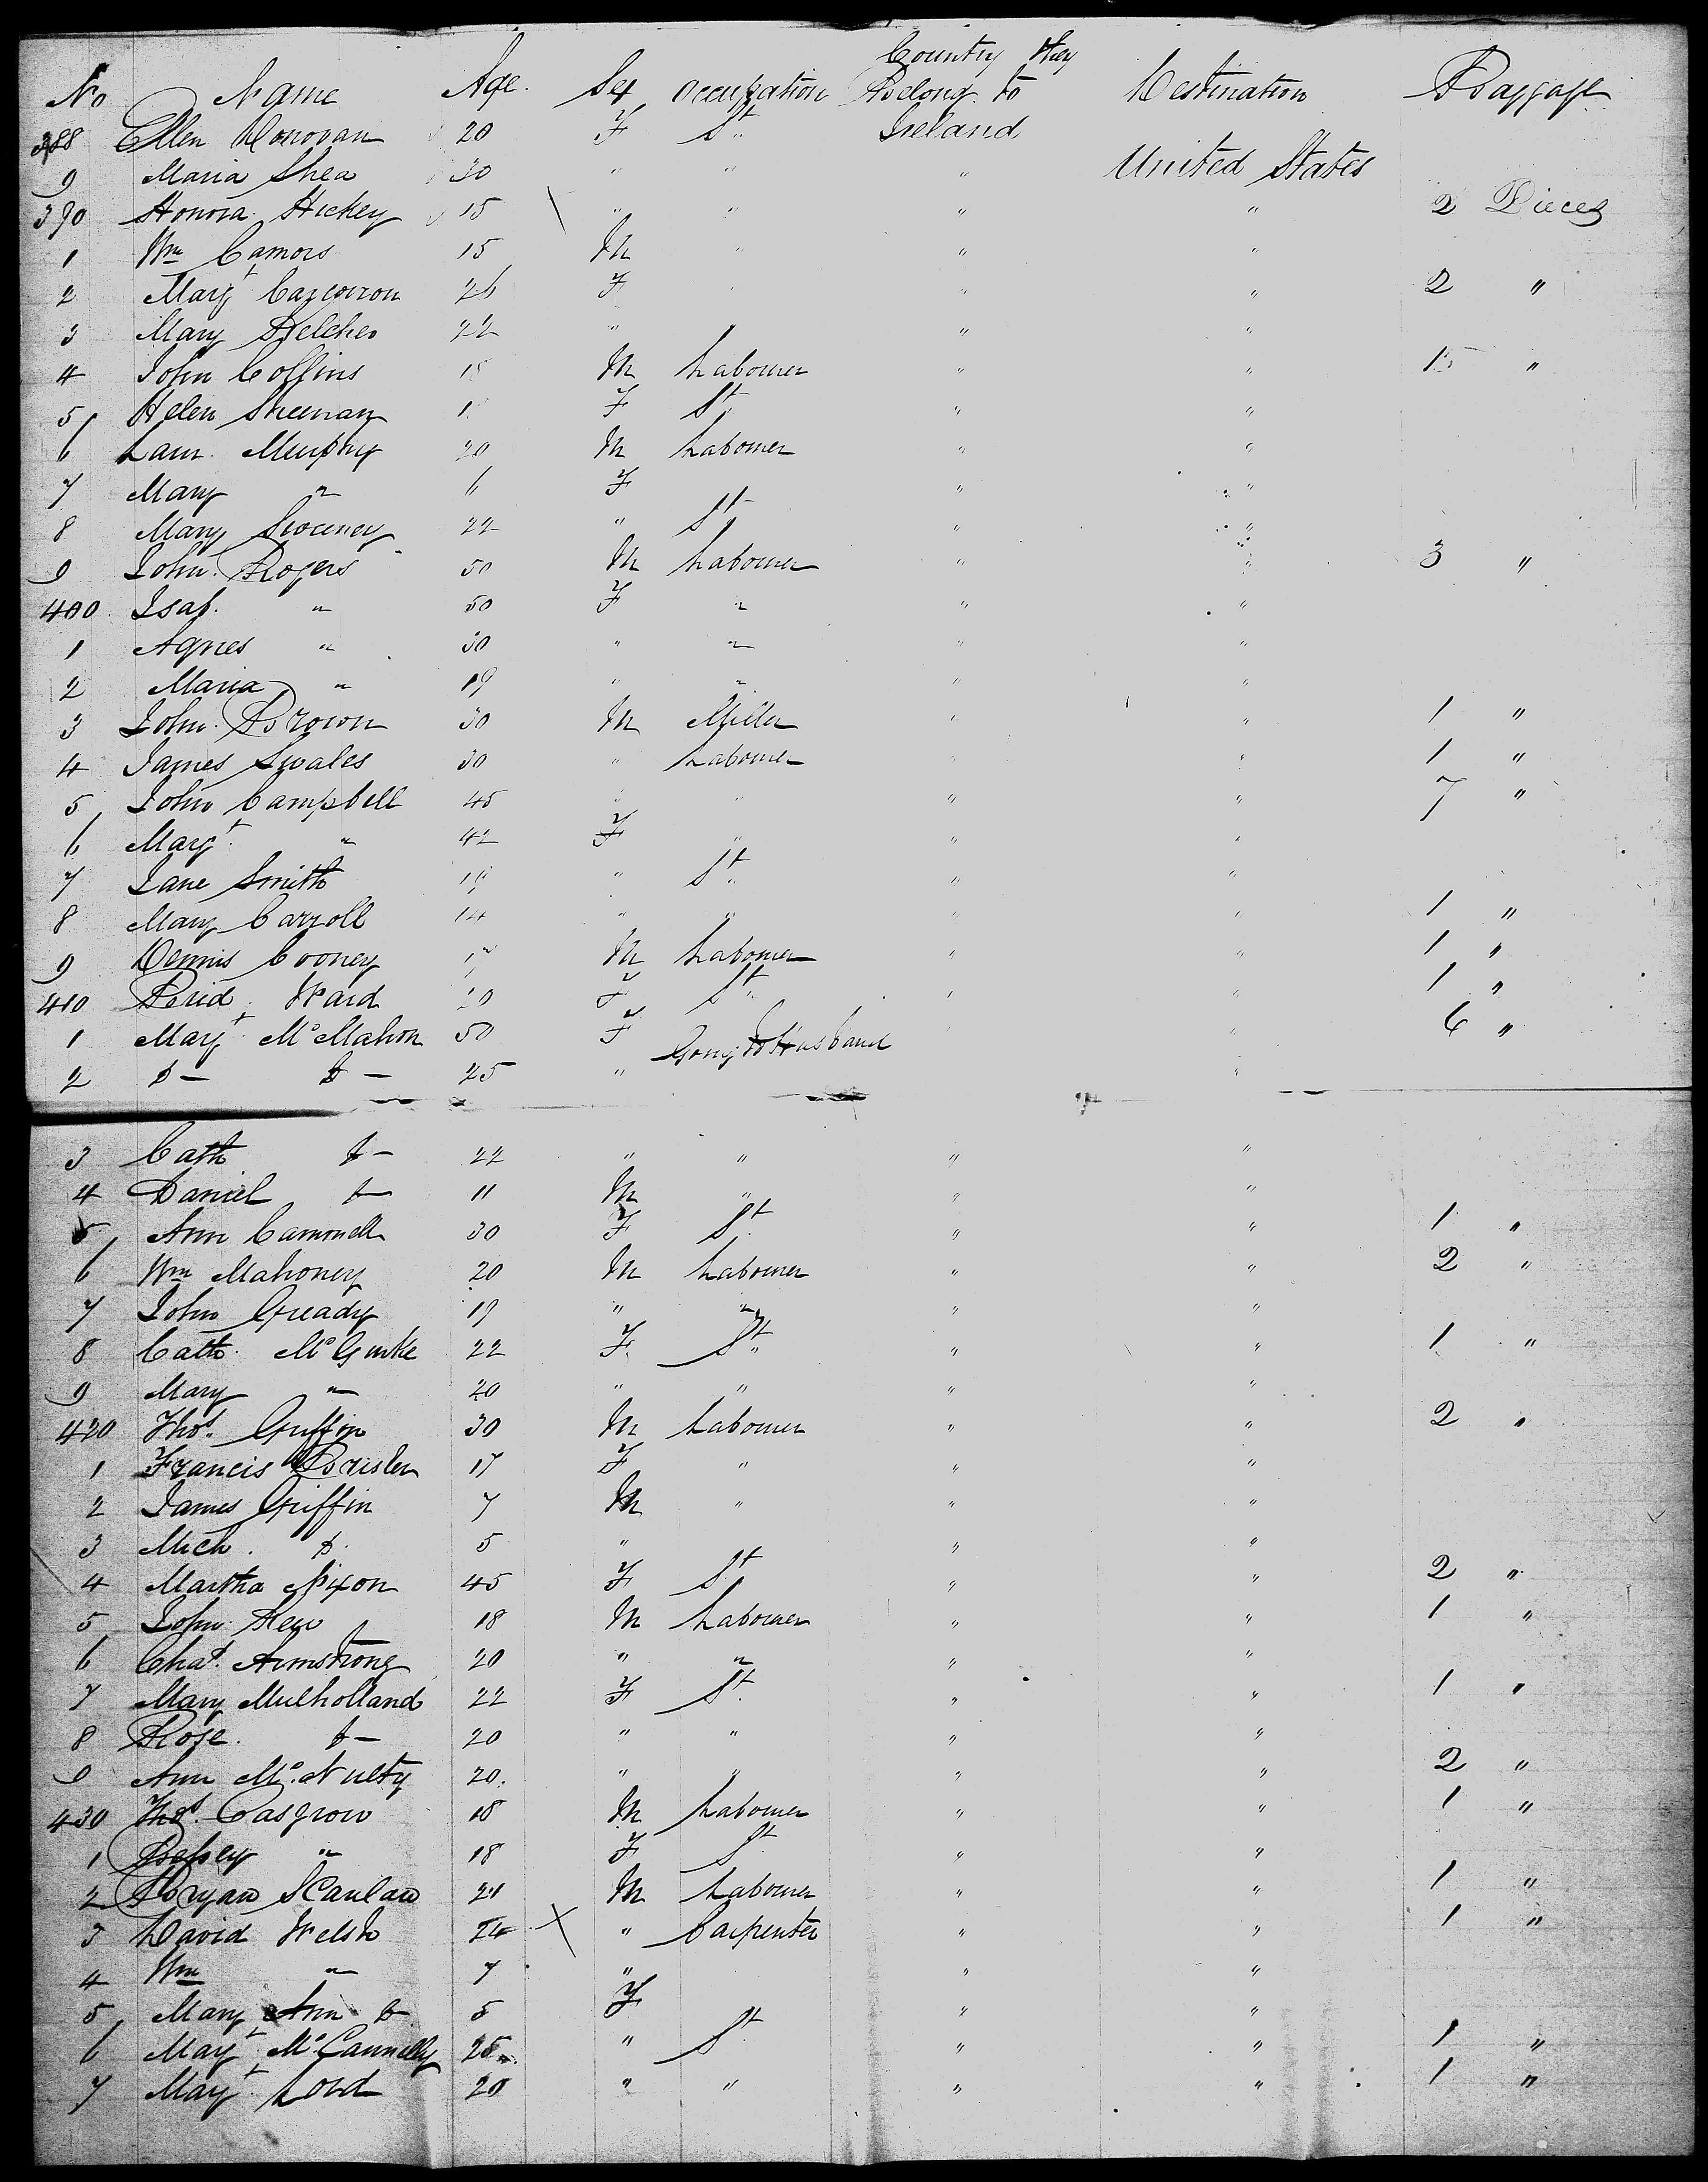 Country they
No Name Age. Sex Occupation Belong to Destination Baggage
388 Ellen Donovan 20 F St. Ireland
9 Maria Shea 30 " " " United States
390 Honora Hickey 15 " " " " 2 Pieces
1 Wm Camors 15 M " " "
2 Margt 26 F " " " 2 "
3 Mary Belcher 22 " " " "
4 John Collins 18 M Labourer " " 15 "
5 Helen Sheenan F St " "
6 Laur. Murphy 20 M Labourer " "
7 Mary " 6 F " "
8 Mary Sweeney 22 " St " "
9 John Rogers 50 M Labourer " " 3 "
400 Isab. " 50 F " " "
1 Agnes " 30 " " " "
2 Maria " 19 " " " "
3 John Brown 30 M Miller " " 1 "
4 James Swales 30 " Labourer " " 1 "
5 John Campbell 45 " " " " 7 "
6 Margt. " 42 F " " "
7 Jane Smith " St. " "
8 Mary Carroll 14 " " " " 1 "
9 Dennis Cooney M Labourer " " 1 "
410 Brid. Ward 20 F St. " " 1 "
1 Margt McMahon 50 F Going to Husband " " 6 "
2 D— D— 25 " "
3 Cath D— 22 " " " "
4 Daniel D— 11 M " " "
5 Ann Cammell 30 F St. " " 1 "
6 Wm Mahoney 20 M Labourer " " 2 "
7 John Gready 19 " " " "
8 Cath. McGurke 22 F. St. " " 1 "
9 Mary " 20 " " " "
420 Thos. Griffin 30 M Labourer " " 2 "
1 Francis Brislen 17 F " " "
2 James Griffin 7 M " " "
3 Mich. D. 5 " " "
4 Martha Nixon 45 F St " " 2 "
5 John Rew 18 M Labourer " " 1 "
6 Chas. Armstrong 20 " " " "
7 Mary Mulholland 22 F St. " " 1 "
8 Rose. D— 20 " " " "
9 Ann McNulty 20. " " " " 2 "
430 Thos. Casgrow 18 M Labourer " " 1 "
1 Betsey " 18 F St " "
2 Bryan Scanlan 20 M Labourer " " 1 "
3 David Welsh 24 X " Carpenter " " 1 "
4 Wm " 7 " " "
5 Mary Ann D 5 F " "
6 Mayt. McCannelly 25 " St. " " 1 "
7 Mayt. Lord 20 " " " " 1 "